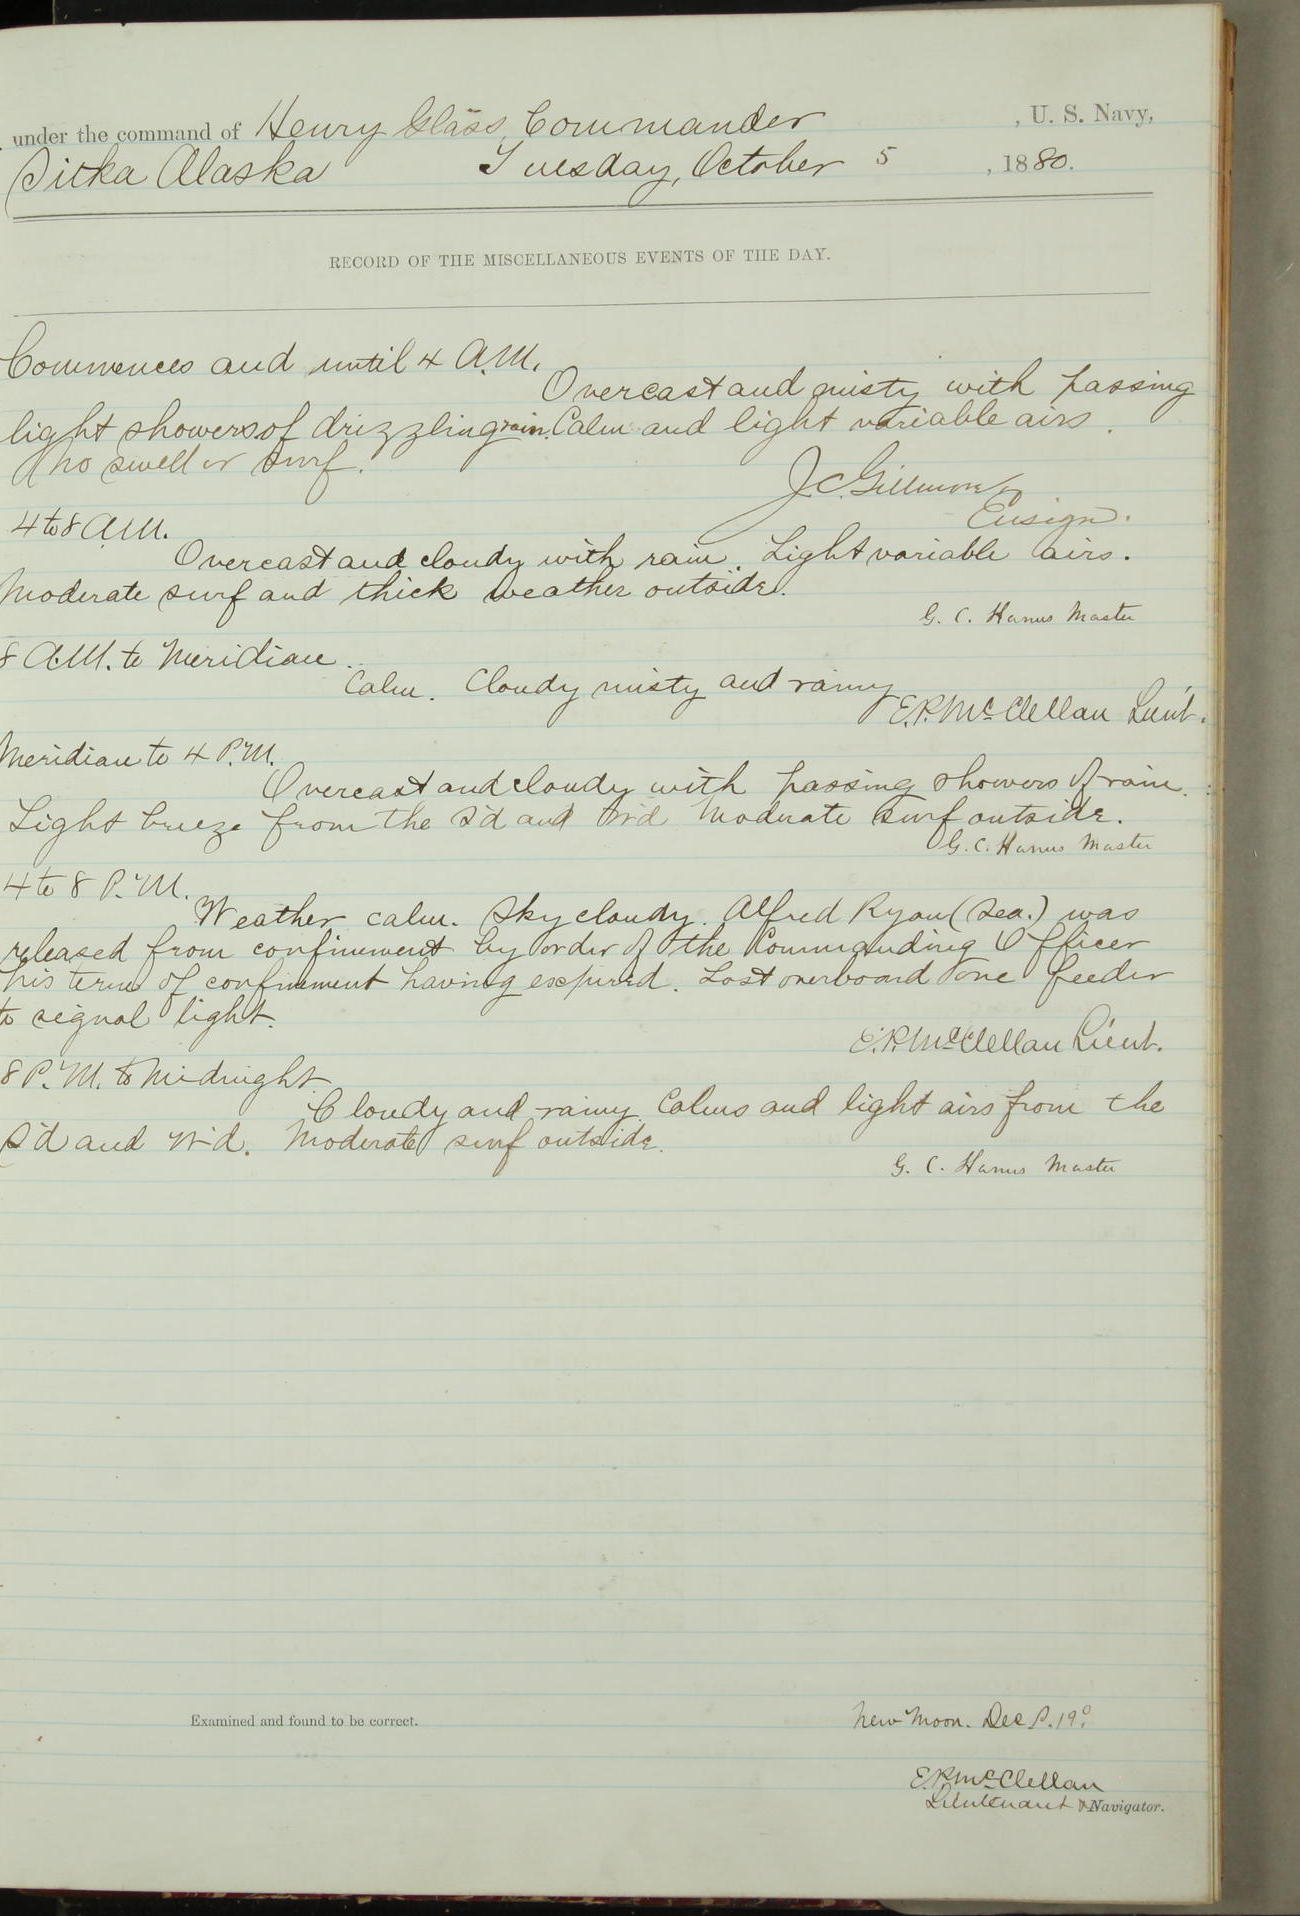 under the command of Henry Glass, Commander , U. S. Navy,
Sitka Alaska Tuesday, October 5 , 1880.
RECORD OF THE MISCELLANEOUS EVENTS OF THE DAY.
Commences and until 4 A.M.
Overcast and misty with passing
light showers of drizzling rain. Calm and light variable airs.
No swell or surf.
J. C. Gillmore
Ensign.
4 to 8 A.M.
Overcast and cloudy with rain. Light variable airs.
Moderate surf and thick weather outside.
G. C. Hanus Master
8 A.M. to Meridian.
Calm. Cloudy misty and rainy
E. R. McClellan Lieut.
Meridian to 4 P.M.
Overcast and cloudy with passing showers of rain.
Light breeze from the S'd and W'd Moderate surf outside.
G. C. Hanus Master
4 to 8 P.M.
Weather calm. Sky cloudy. Alfred Ryan (Sea.) was
released from confinement by order of the Commanding Officer
his term of confinement having expired. Lost overboard one feeder
to signal light.
E. R. McClellan Lieut.
8 P.M. to Midnight
Cloudy and rainy Calms and light airs from the
S'd and W'd. Moderate surf outside.
G. C. Hanus Master
Examined and found to be correct.
New Moon. Dec S. 19°
E. R. McClellan
Lieutenant & Navigator.